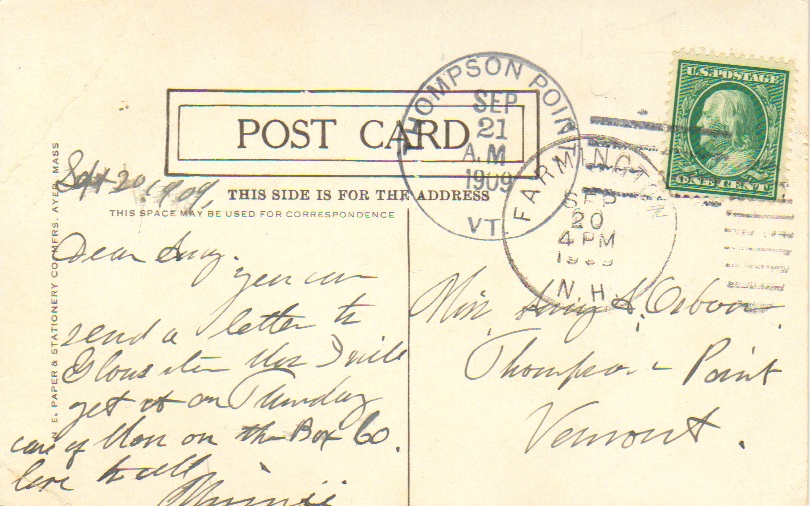 U.S. POSTAGE
ONE CENT
THOMPSON POINT
SEP
21
A.M
1909
VT.
FARMINGTON
SEP
20
4 PM
1909
N.H.
POST CARD
THIS SIDE IS FOR THE ADDRESS
THIS SPACE MAY BE USED FOR CORRESPONDENCE
N. E. PAPER & STATIONERY CO. MFRS. AYER, MASS
Sept 20, 1909,
Dear
you can
send a letter to
I will
get it on
care of on the Box 60.
love to all
Minnie
Miss
Thompson Point
Vermont.